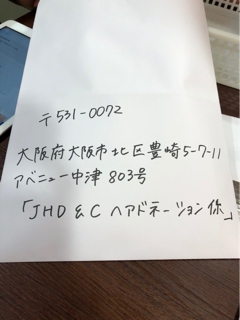 〒531-0072
大阪府大阪市北区豊崎5-7-11
アベニュー中津803号
「JHD&C ヘアドネーション係」